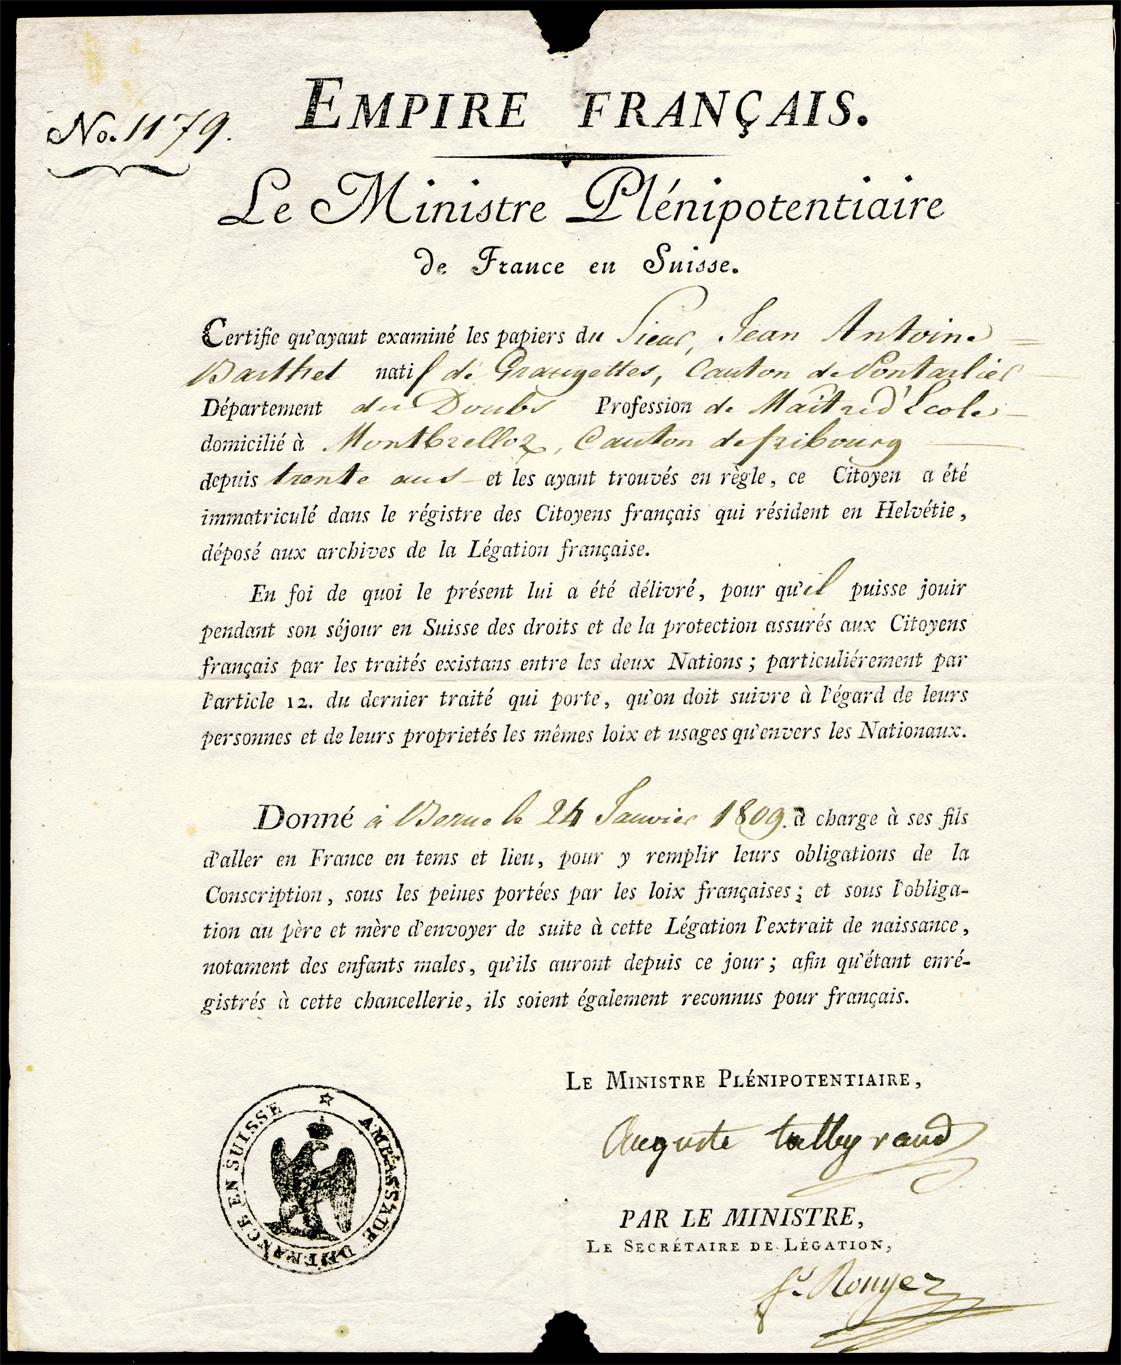 No. 1179.
EMPIRE FRANÇAIS.
Le Ministre Plénipotentiaire
de France en Suisse.
Certifie qu'ayant examiné les papiers du Sieur, Jean Antoine
Barthet natif de Granzettes, Canton de Pontarlier
Département du Doubs Profession de Maître d'Ecole
domicilié à Montbrelloz, Canton de fribourg
depuis trente ans et les ayant trouvés en règle, ce Citoyen a été
immatriculé dans le régistre des Citoyens français qui résident en Helvétie,
déposé aux archives de la Légation française.
En foi de quoi le présent lui a été délivré, pour qu'il puisse jouir
pendant son séjour en Suisse des droits et de la protection assurés aux Citoyens
français par les traités existans entre les deux Nations; particuliérement par
l'article 12. du dernier traité qui porte, qu'on doit suivre à l'égard de leurs
personnes et de leurs proprietés les mêmes loix et usages qu'envers les Nationaux.
Donné à Berne le 24 Janvier 1809. à charge à ses fils
d'aller en France en tems et lieu, pour y remplir leurs obligations de la
Conscription, sous les peines portées par les loix françaises; et sous l'obliga-
tion au père et mère d'envoyer de suite à cette Légation l'extrait de naissance,
notament des enfants males, qu'ils auront depuis ce jour; afin qu'étant enré-
gistrés à cette chancellerie, ils soient également reconnus pour français.
LE MINISTRE PLÉNIPOTENTIAIRE,
Auguste talleyrand
PAR LE MINISTRE,
LE SECRÉTAIRE DE LÉGATION,
Rouyer
AMBASSADE DE FRANCE EN SUISSE